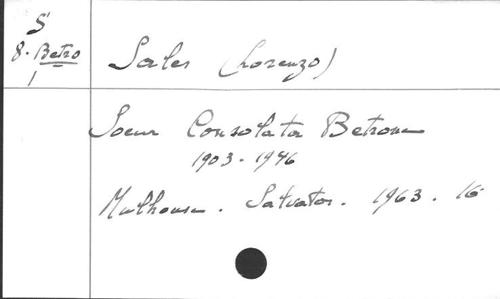 S
8. Betro
1
Sales (Lorenzo)
Soeur Consolata Betrone
1903-1946
Mulhouse. Salvator. 1963. 16°